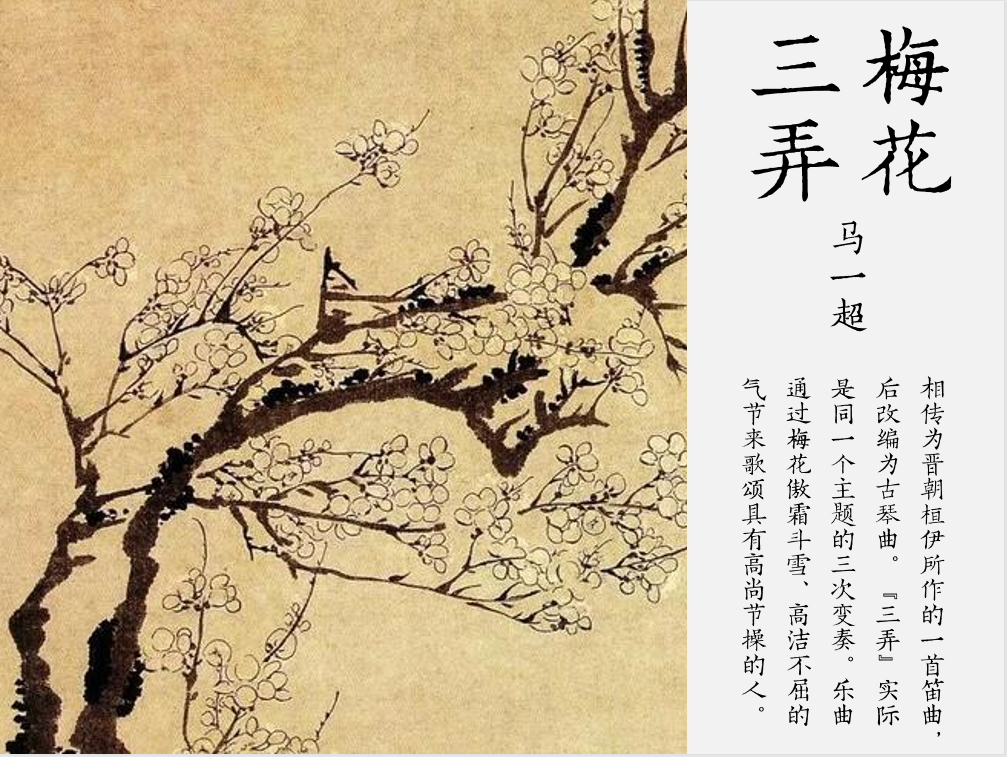 梅花
三弄
马一超
相传为晋朝桓伊所作的一首笛曲，
后改编为古琴曲。『三弄』实际
是同一个主题的三次变奏。乐曲
通过梅花傲霜斗雪、高洁不屈的
气节来歌颂具有高尚节操的人。